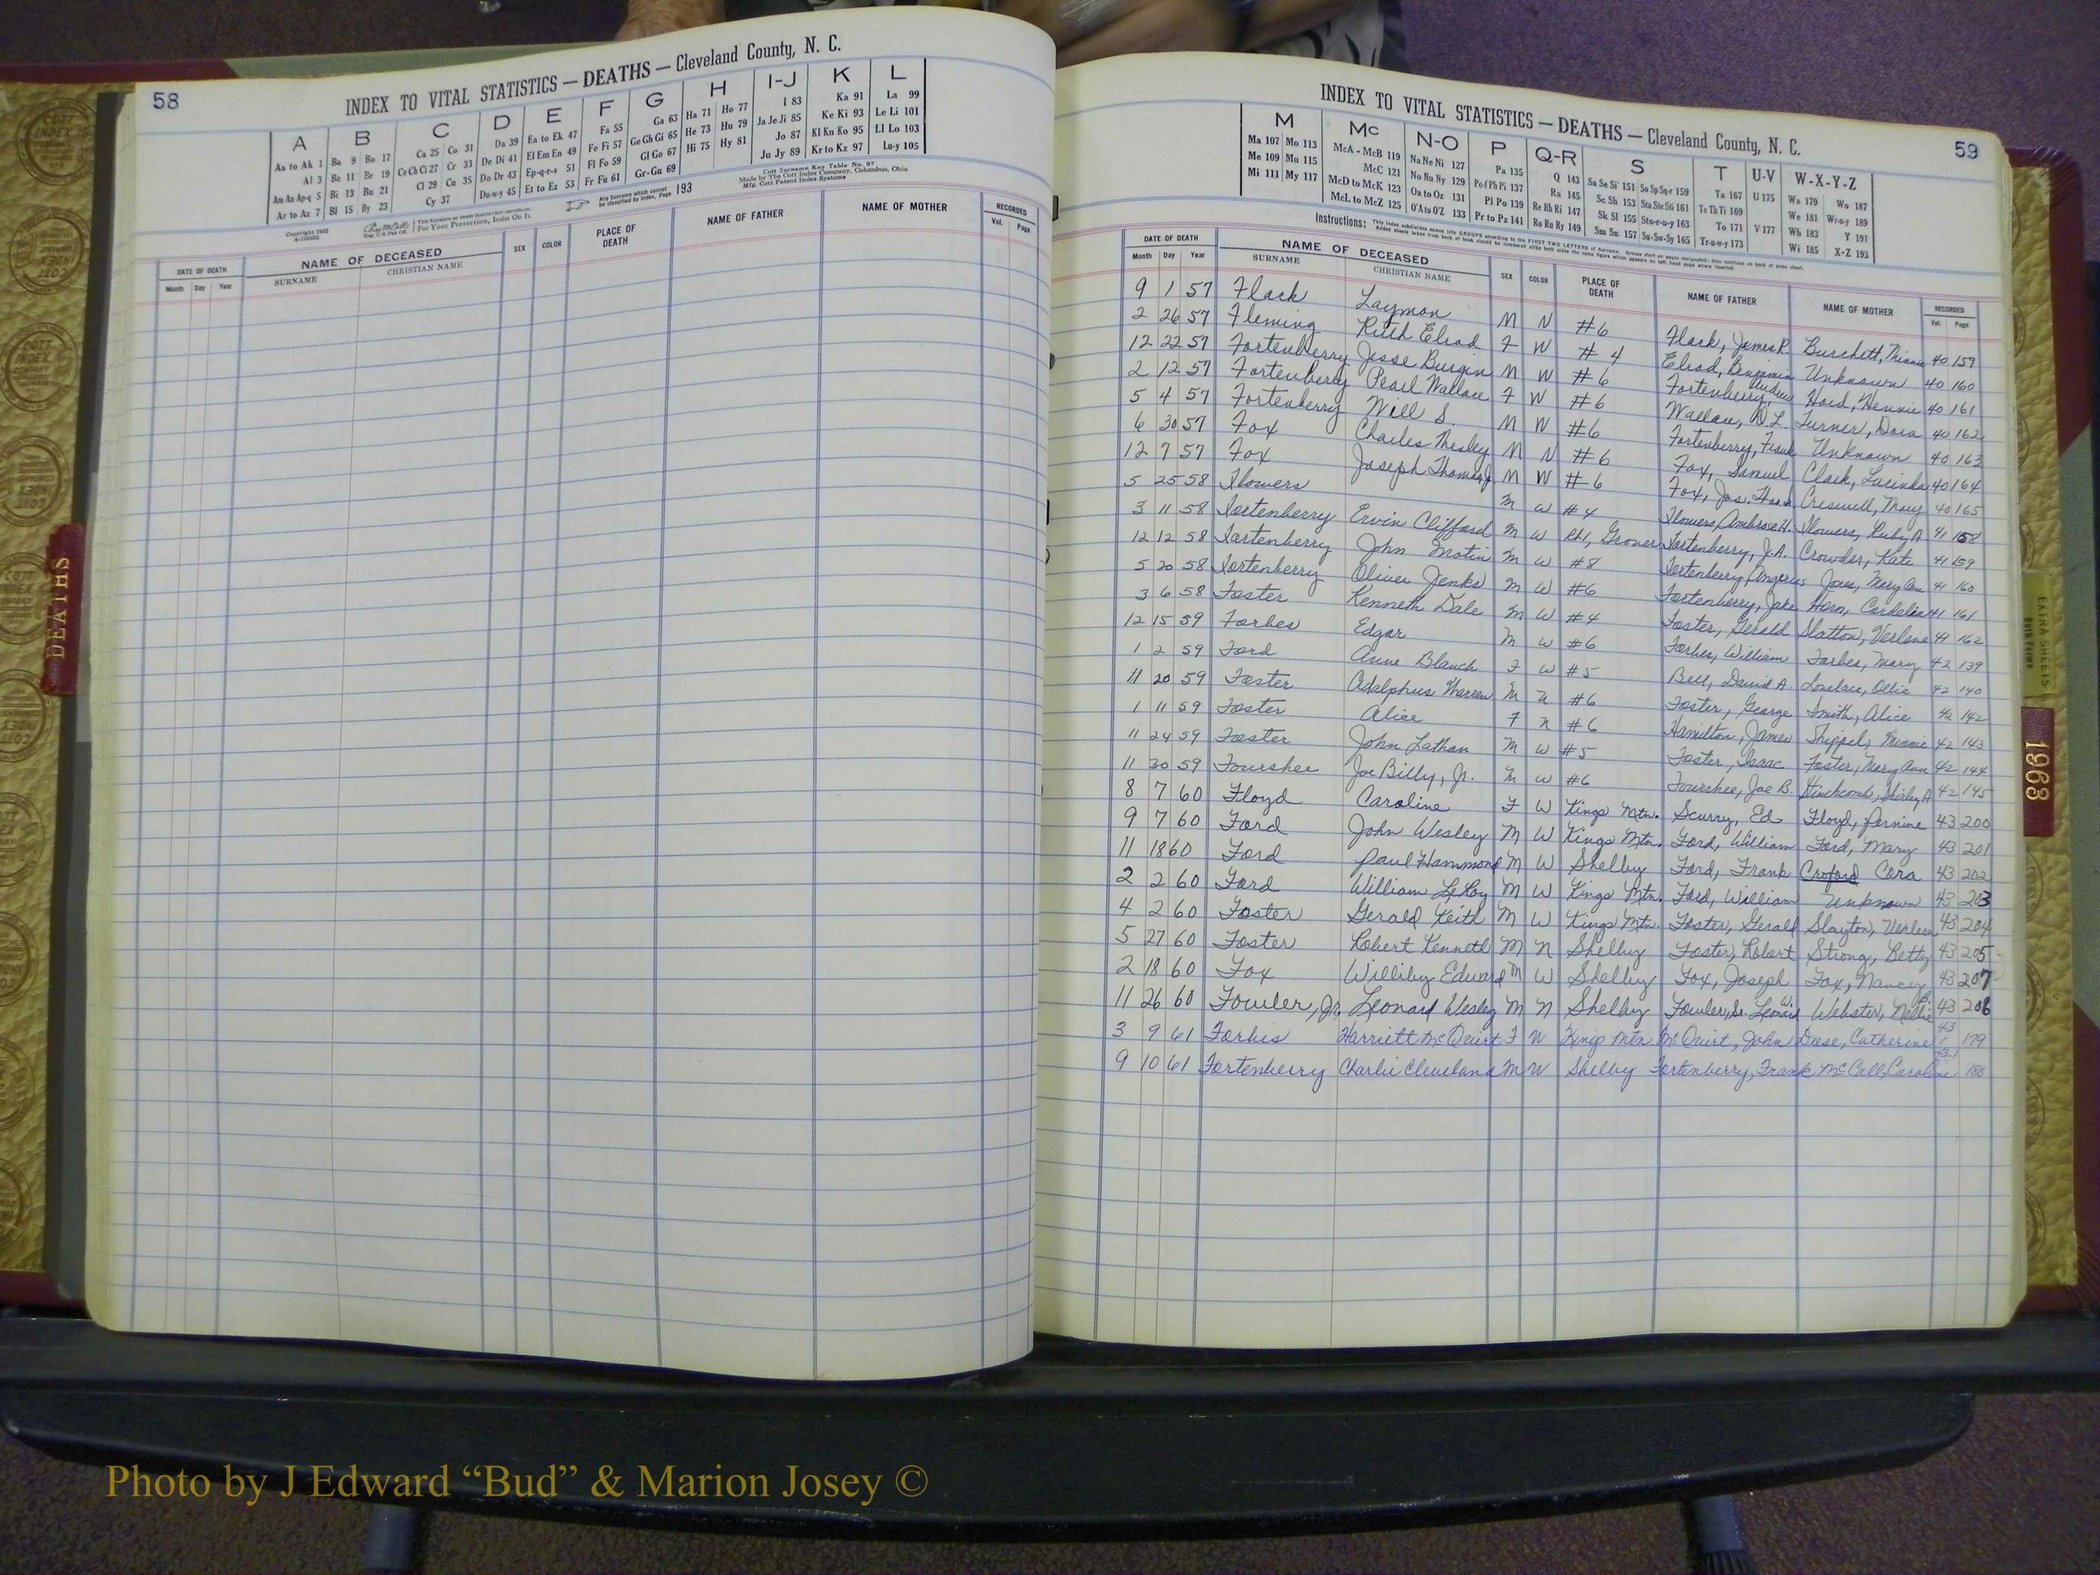 58
INDEX TO VITAL STATISTICS — DEATHS — Cleveland County, N. C.
A B C D E F G H I-J K L
Aa to Ak 1 Ba 9 Bo 17 Ca 25 Co 31 Da 39 Ea to Ek 47 Fa 55 Ga 63 Ha 71 Ho 77 I 83 Ka 91 La 99
Al 3 Be 11 Br 19 Ce Ch Ci 27 Cr 33 De Di 41 El Em En 49 Fe Fi 57 Ge Gh Gi 65 He 73 Hu 79 Ja Je Ji 85 Ke Ki 93 Le Li 101
Am Au Ap-q 5 Bi 13 Bu 21 Cl 29 Cu 35 Do Dr 43 Ep-q-r-s 51 Fl Fo 59 Gl Go 67 Hi 75 Hy 81 Jo 87 Kl Kn Ko 95 Ll Lo 103
Ar to Az 7 Bl 15 By 23 Cy 37 Du-w-y 45 Et to Ez 53 Fr Fu 61 Gr-Gu 69 Ju Jy 89 Kr to Kz 97 Lu-y 105
Copyright 1932
For Your Protection, Insist On It.
Any Surname which cannot be classified by index, Page 193
Cott Surname Key Table No. 97
Made by The Cott Index Company, Columbus, Ohio
Mfg. Cott Patent Index Systems
DATE OF DEATH NAME OF DECEASED SEX COLOR PLACE OF DEATH NAME OF FATHER NAME OF MOTHER RECORDED
Month Day Year SURNAME CHRISTIAN NAME Vol. Page
DEATHS
INDEX TO VITAL STATISTICS — DEATHS — Cleveland County, N. C.
59
M Mc N-O P Q-R S T U-V W-X-Y-Z
Ma 107 Mo 113 McA - McB 119 Na Ne Ni 127 Pa 135 Q 143 Sa Se Si 151 So Sp Sq-r 159 Ta 167 U 175 Wa 179 Wo 187
Me 109 Mu 115 McC 121 No Nu Ny 129 Pe-f Ph Pi 137 Ra 145 Sc Sh 153 Sta Ste Sti 161 Te Th Ti 169 We 181 Wr-u-y 189
Mi 111 My 117 McD to McK 123 Oa to Oz 131 Pl Po 139 Re Rh Ri 147 Sk Sl 155 Sto-r-u-y 163 To 171 V 177 Wh 183 Y 191
McL to McZ 125 O'A to O'Z 133 Pr to Pz 141 Ro Ru Ry 149 Sm Sn 157 Su-Sw-Sy 165 Tr-u-w-y 173 Wi 185 X-Z 193
Instructions:
DATE OF DEATH NAME OF DECEASED SEX COLOR PLACE OF DEATH NAME OF FATHER NAME OF MOTHER RECORDED
Month Day Year SURNAME CHRISTIAN NAME Vol. Page
9 1 57 Flack Laymon M N #6 Flack, James R. Burchett, Minnie 40 159
2 26 57 Fleming Ruth Elrod F W #4 Elrod, Benjamin Unknown 40 160
12 22 57 Fortenberry Jesse Burgin M W #6 Fortenberry, Andrew Hord, Hennie 40 161
2 12 57 Fortenberry Pearl Wallace F W #6 Wallace, D.L. Turner, Dora 40 162
5 4 57 Fortenberry Will S. M W #6 Fortenberry, Frank Unknown 40 163
6 30 57 Fox Charles Wesley M N #6 Fox, Samuel Clark, Lucinda 40 164
12 7 57 Fox Joseph Thomas, Jr. M W #6 Fox, Jos. Thos. Creswell, Mary 40 165
5 25 58 Flowers M W #4 Flowers, Ambrose H. Flowers, Ruby A 41 158
3 11 58 Fortenberry Ervin Clifford M W Rt1, Grover Fortenberry, J.A. Crowder, Kate 41 159
12 12 58 Fortenberry John M W #8 Fortenberry Jones, Mary Ann 41 160
5 20 58 Fortenberry Oliver Jenks M W #6 Fortenberry, Jake Horn, Cordelia 41 161
3 6 58 Foster Kenneth Dale M W #4 Foster, Gerald Slatton, Verlene 41 162
12 15 59 Forbes Edgar M W #6 Forbes, William Forbes, Mary 42 139
1 2 59 Ford Anne Blanch F W #5 Bell, David A Lovelace, Ollie 42 140
11 20 59 Foster Adolphus Warren M N #6 Foster, George Smith, Alice 42 142
1 11 59 Foster Alice F N #6 Hamilton, James Shippel, Minnie 42 143
11 24 59 Foster John Lathan M W #5 Foster, Isaac Foster, Mary Ann 42 144
11 30 59 Fourshee Joe Billy, Jr. M W #6 Fourshee, Joe B. Hinchcomb, Shirley A 42 145
8 7 60 Floyd Caroline F W Kings Mtn. Scurry, Ed Floyd, Pernine 43 200
9 7 60 Ford John Wesley M W Kings Mtn. Ford, William Ford, Mary 43 201
11 18 60 Ford Paul Hammond M W Shelby Ford, Frank Croford Cora 43 202
2 2 60 Ford William LeRoy M W Kings Mtn. Ford, William Unknown 43 203
4 2 60 Foster Gerald Keith M W Kings Mtn. Foster, Gerald Slayton, Verleen 43 204
5 27 60 Foster Robert Kenneth M N Shelby Foster, Robert Strong, Betty 43 205
2 18 60 Fox Williby Edward M W Shelby Fox, Joseph Fox, Nancy B. 43 207
11 26 60 Fowler, Jr. Leonard Wesley M N Shelby Fowler, Sr. Leonard W. Webster, Nellie 43 206
3 9 61 Forbis Harriett McQuirt F W Kings Mtn McQuirt, John Deese, Catherine 43-1 179
9 10 61 Fortenberry Charlie Cleveland M W Shelby Fortenberry, Frank McCall, Caroline 43-1 180
EXTRA SHEETS
1963
Photo by J Edward “Bud” & Marion Josey ©